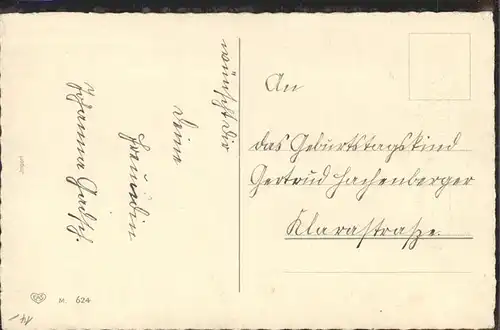 wünscht Dir
Deine
Freundin
Johanna Gadsch.
An
das Geburtstagskind
Gertrud Hachenberger
Klarastraße.
M. 624
14/